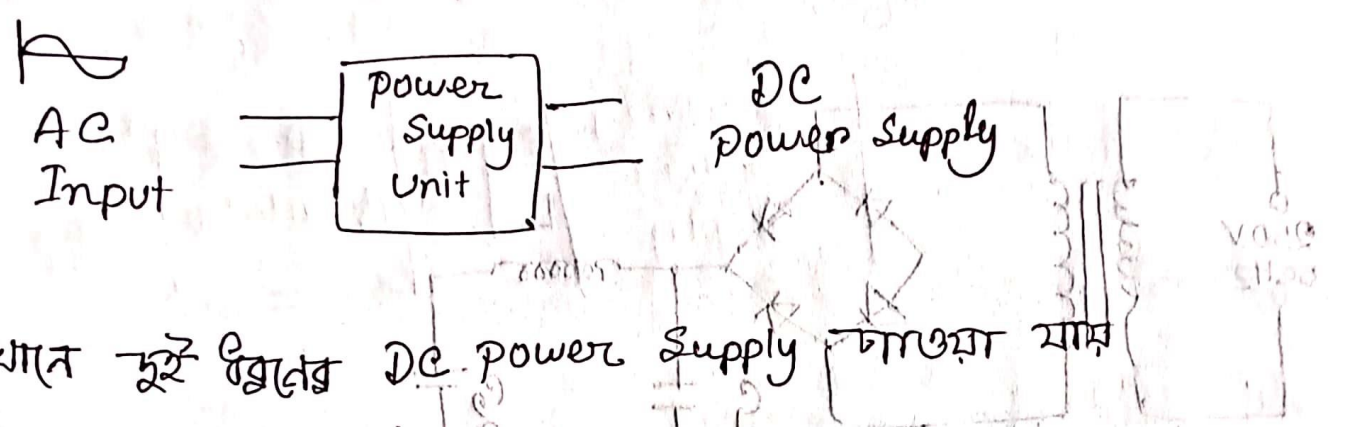 AC
Input
Power
Supply
Unit
DC
Power Supply
খানে দুই ধরনের DC Power Supply পাওয়া যায়